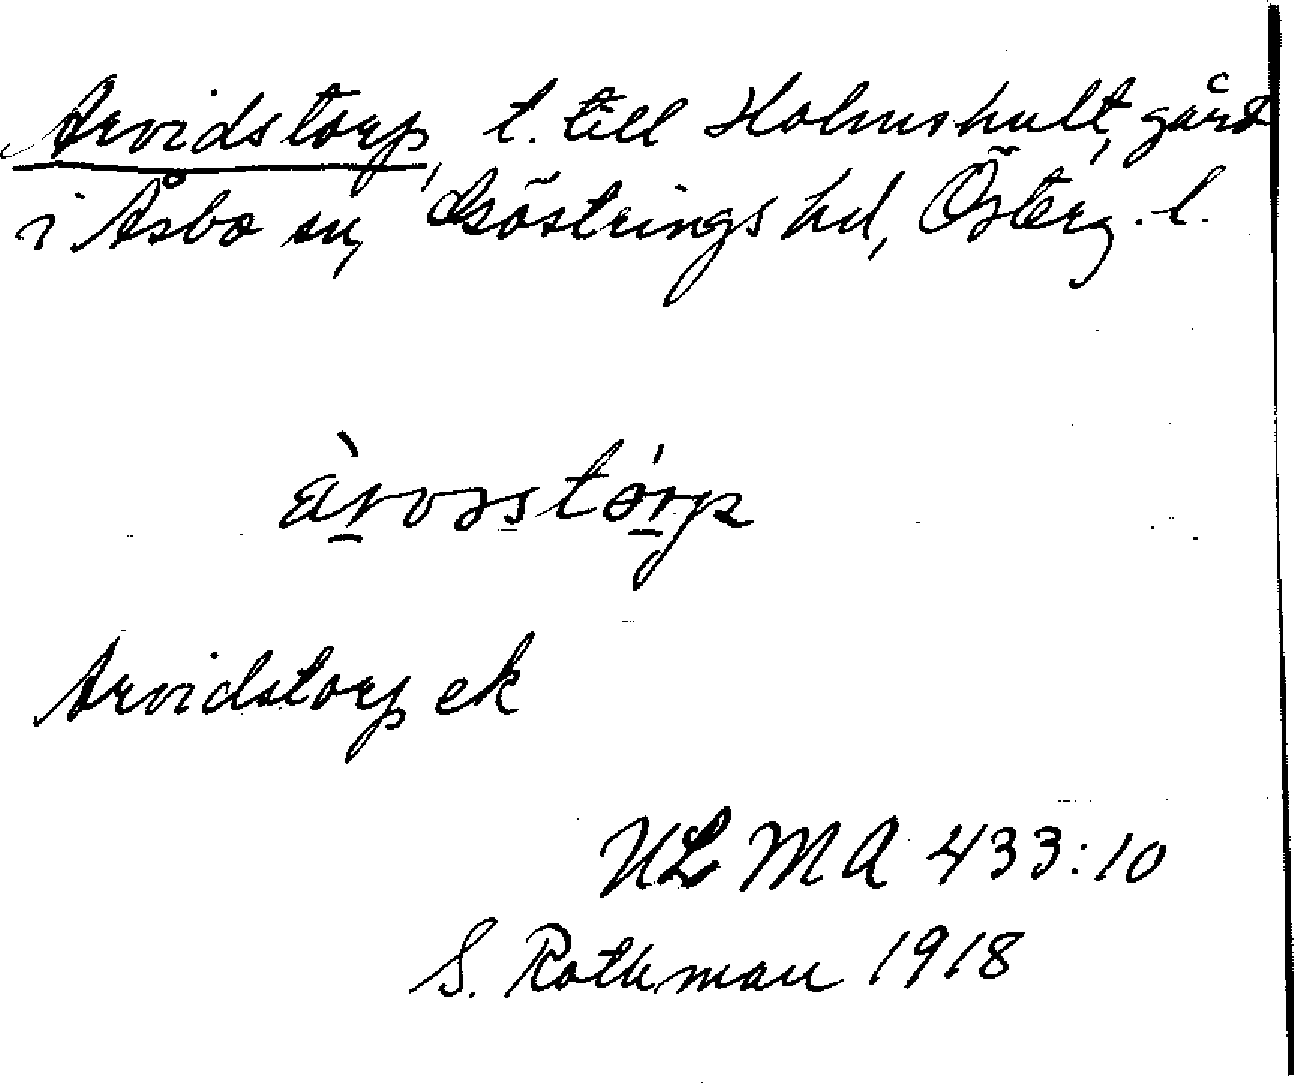 Arvidstorp, t. till Holmshult, gård
i Åsbo sn, Göstrings hd, Österg. l.
Arvidstorp ek
ULMA 433:10
S. Rothman 1918